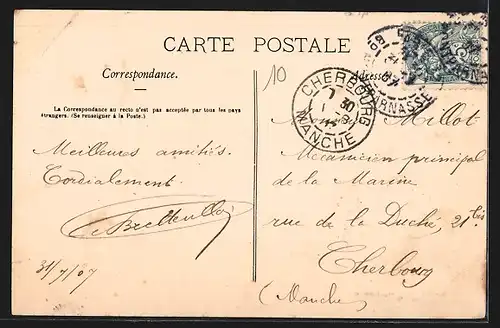 CARTE POSTALE
Correspondance.
Adresse
La Correspondance au recto n'est pas acceptée par tous les pays
étrangers. (Se renseigner à la Poste.)
10
CHERBOURG
MANCHE
Meilleures amitiés.
Cordialement.
31/7/07
Millot
Mécanicien principal
de la Marine
rue de la Duché, 21 bis
Cherbourg
(Manche)